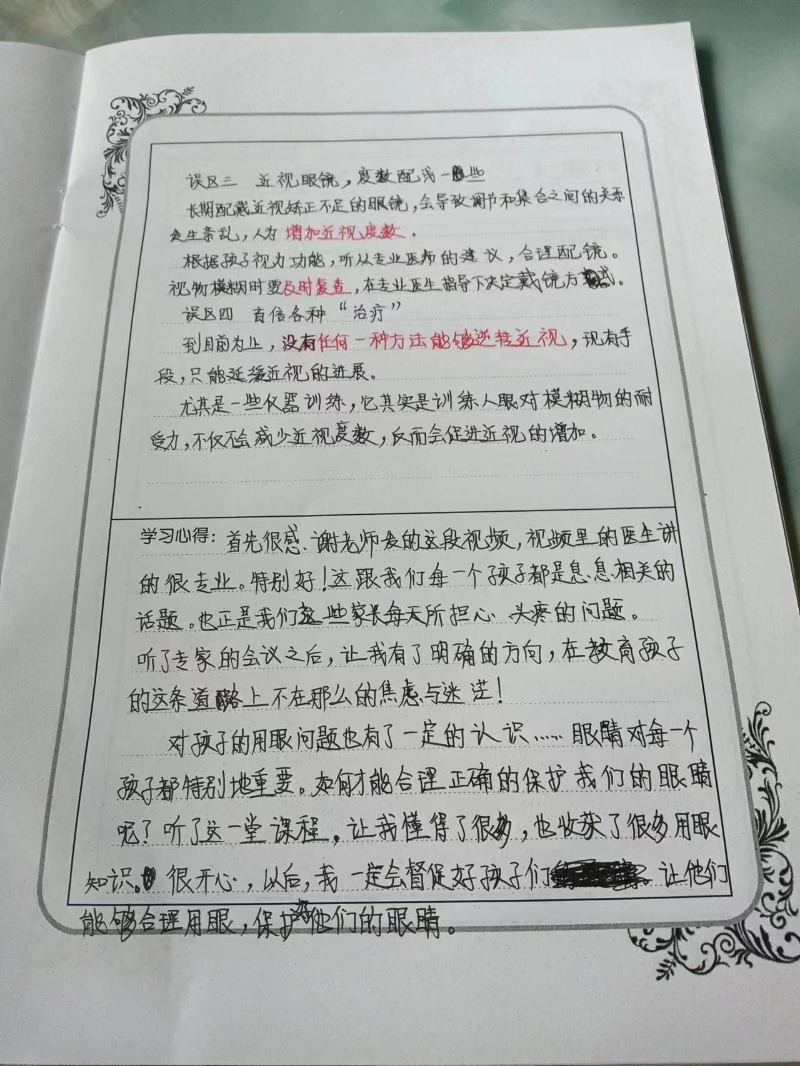 误区三 近视眼镜，度数配浅一些
长期配戴近视矫正不足的眼镜，会导致调节和集合之间的关系
发生紊乱，人为增加近视度数。
根据孩子视力功能，听从专业医师的建议，合理配镜。
视物模糊时要及时复查，在专业医生指导下决定戴镜方式。
误区四 盲信各种“治疗”
到目前为止，没有任何一种方法能够逆转近视，现有手
段，只能延缓近视的进展。
尤其是一些仪器训练，它其实是训练人眼对模糊物的耐
受力，不仅不会减少近视度数，反而会促进近视的增加。
学习心得：首先很感谢老师发的这段视频，视频里的医生讲
的很专业。特别好！这跟我们每一个孩子都是息息相关的
话题。也正是我们这些家长每天所担心、头疼的问题。
听了专家的会议之后，让我有了明确的方向，在教育孩子
的这条道路上不在那么的焦虑与迷茫！
对孩子的用眼问题也有了一定的认识……眼睛对每一个
孩子都特别地重要。如何才能合理正确的保护我们的眼睛
呢？听了这一堂课程，让我懂得了很多，也收获了很多用眼
知识。很开心，以后，我一定会督促好孩子们 让他们
能够合理用眼，保护好他们的眼睛。